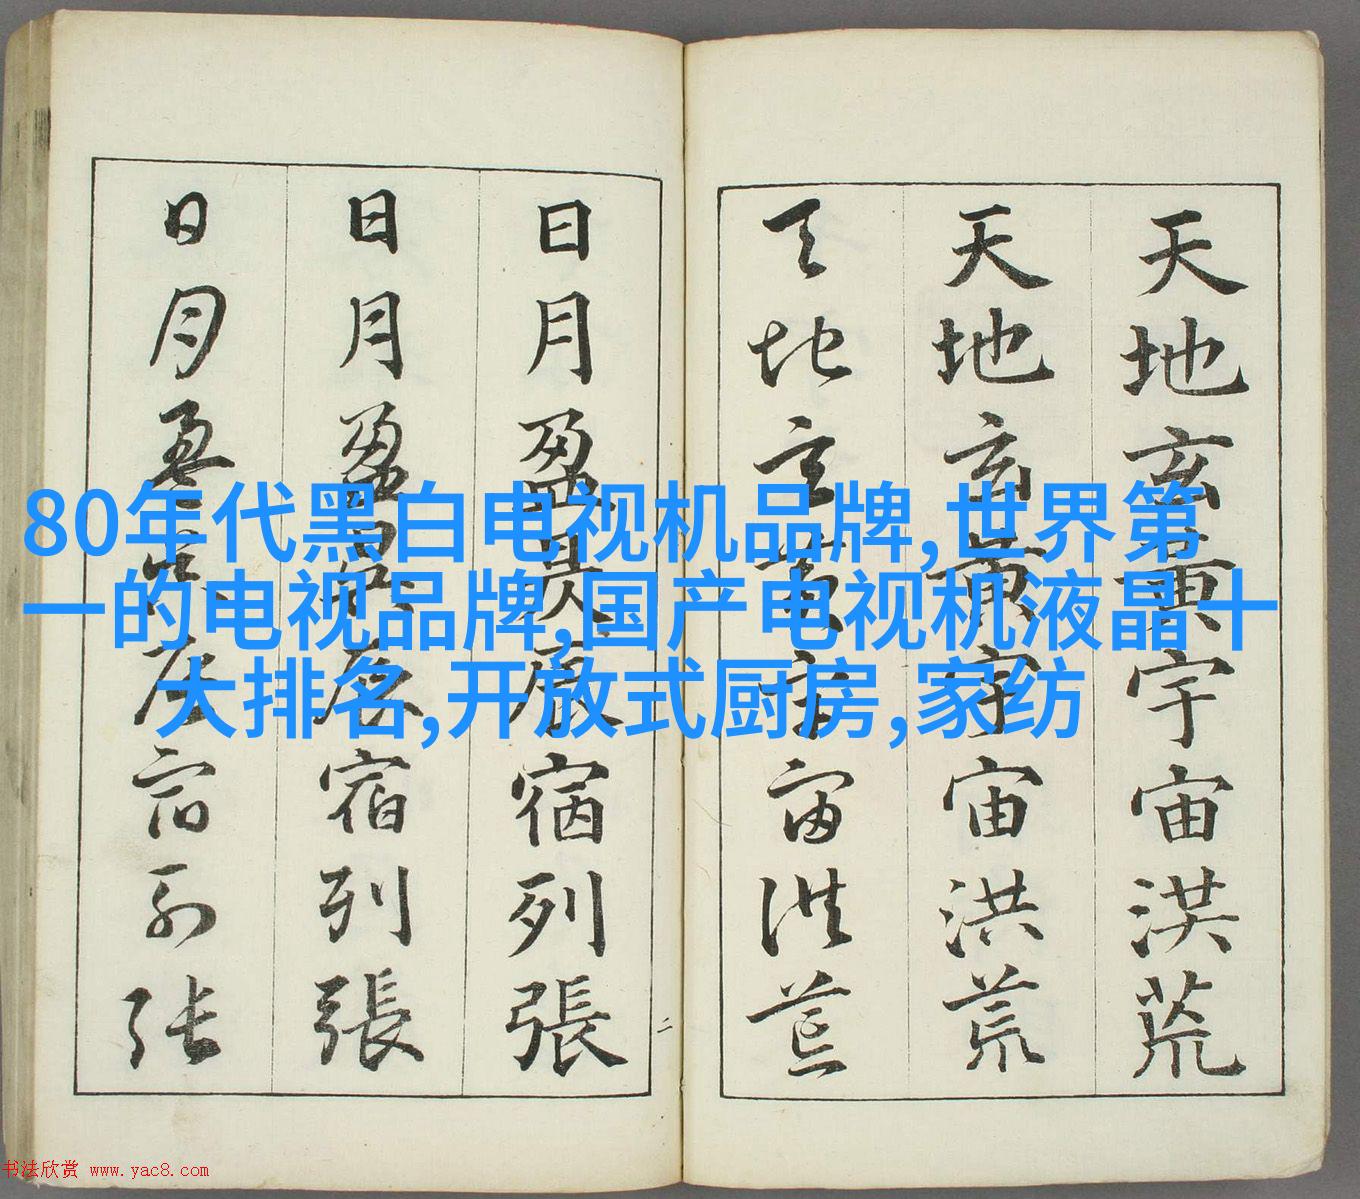 天地玄黄宇宙洪荒
天地玄黄宇宙洪荒
天地玄黄宇宙洪荒
日月盈昃辰宿列張
日月盈昃辰宿列張
日月盈昃辰宿列张
二
80年代黑白电视机品牌,世界第
一的电视品牌,国产电视机液晶十
大排名,开放式厨房,家纺
书法欣赏 www.yac8.com